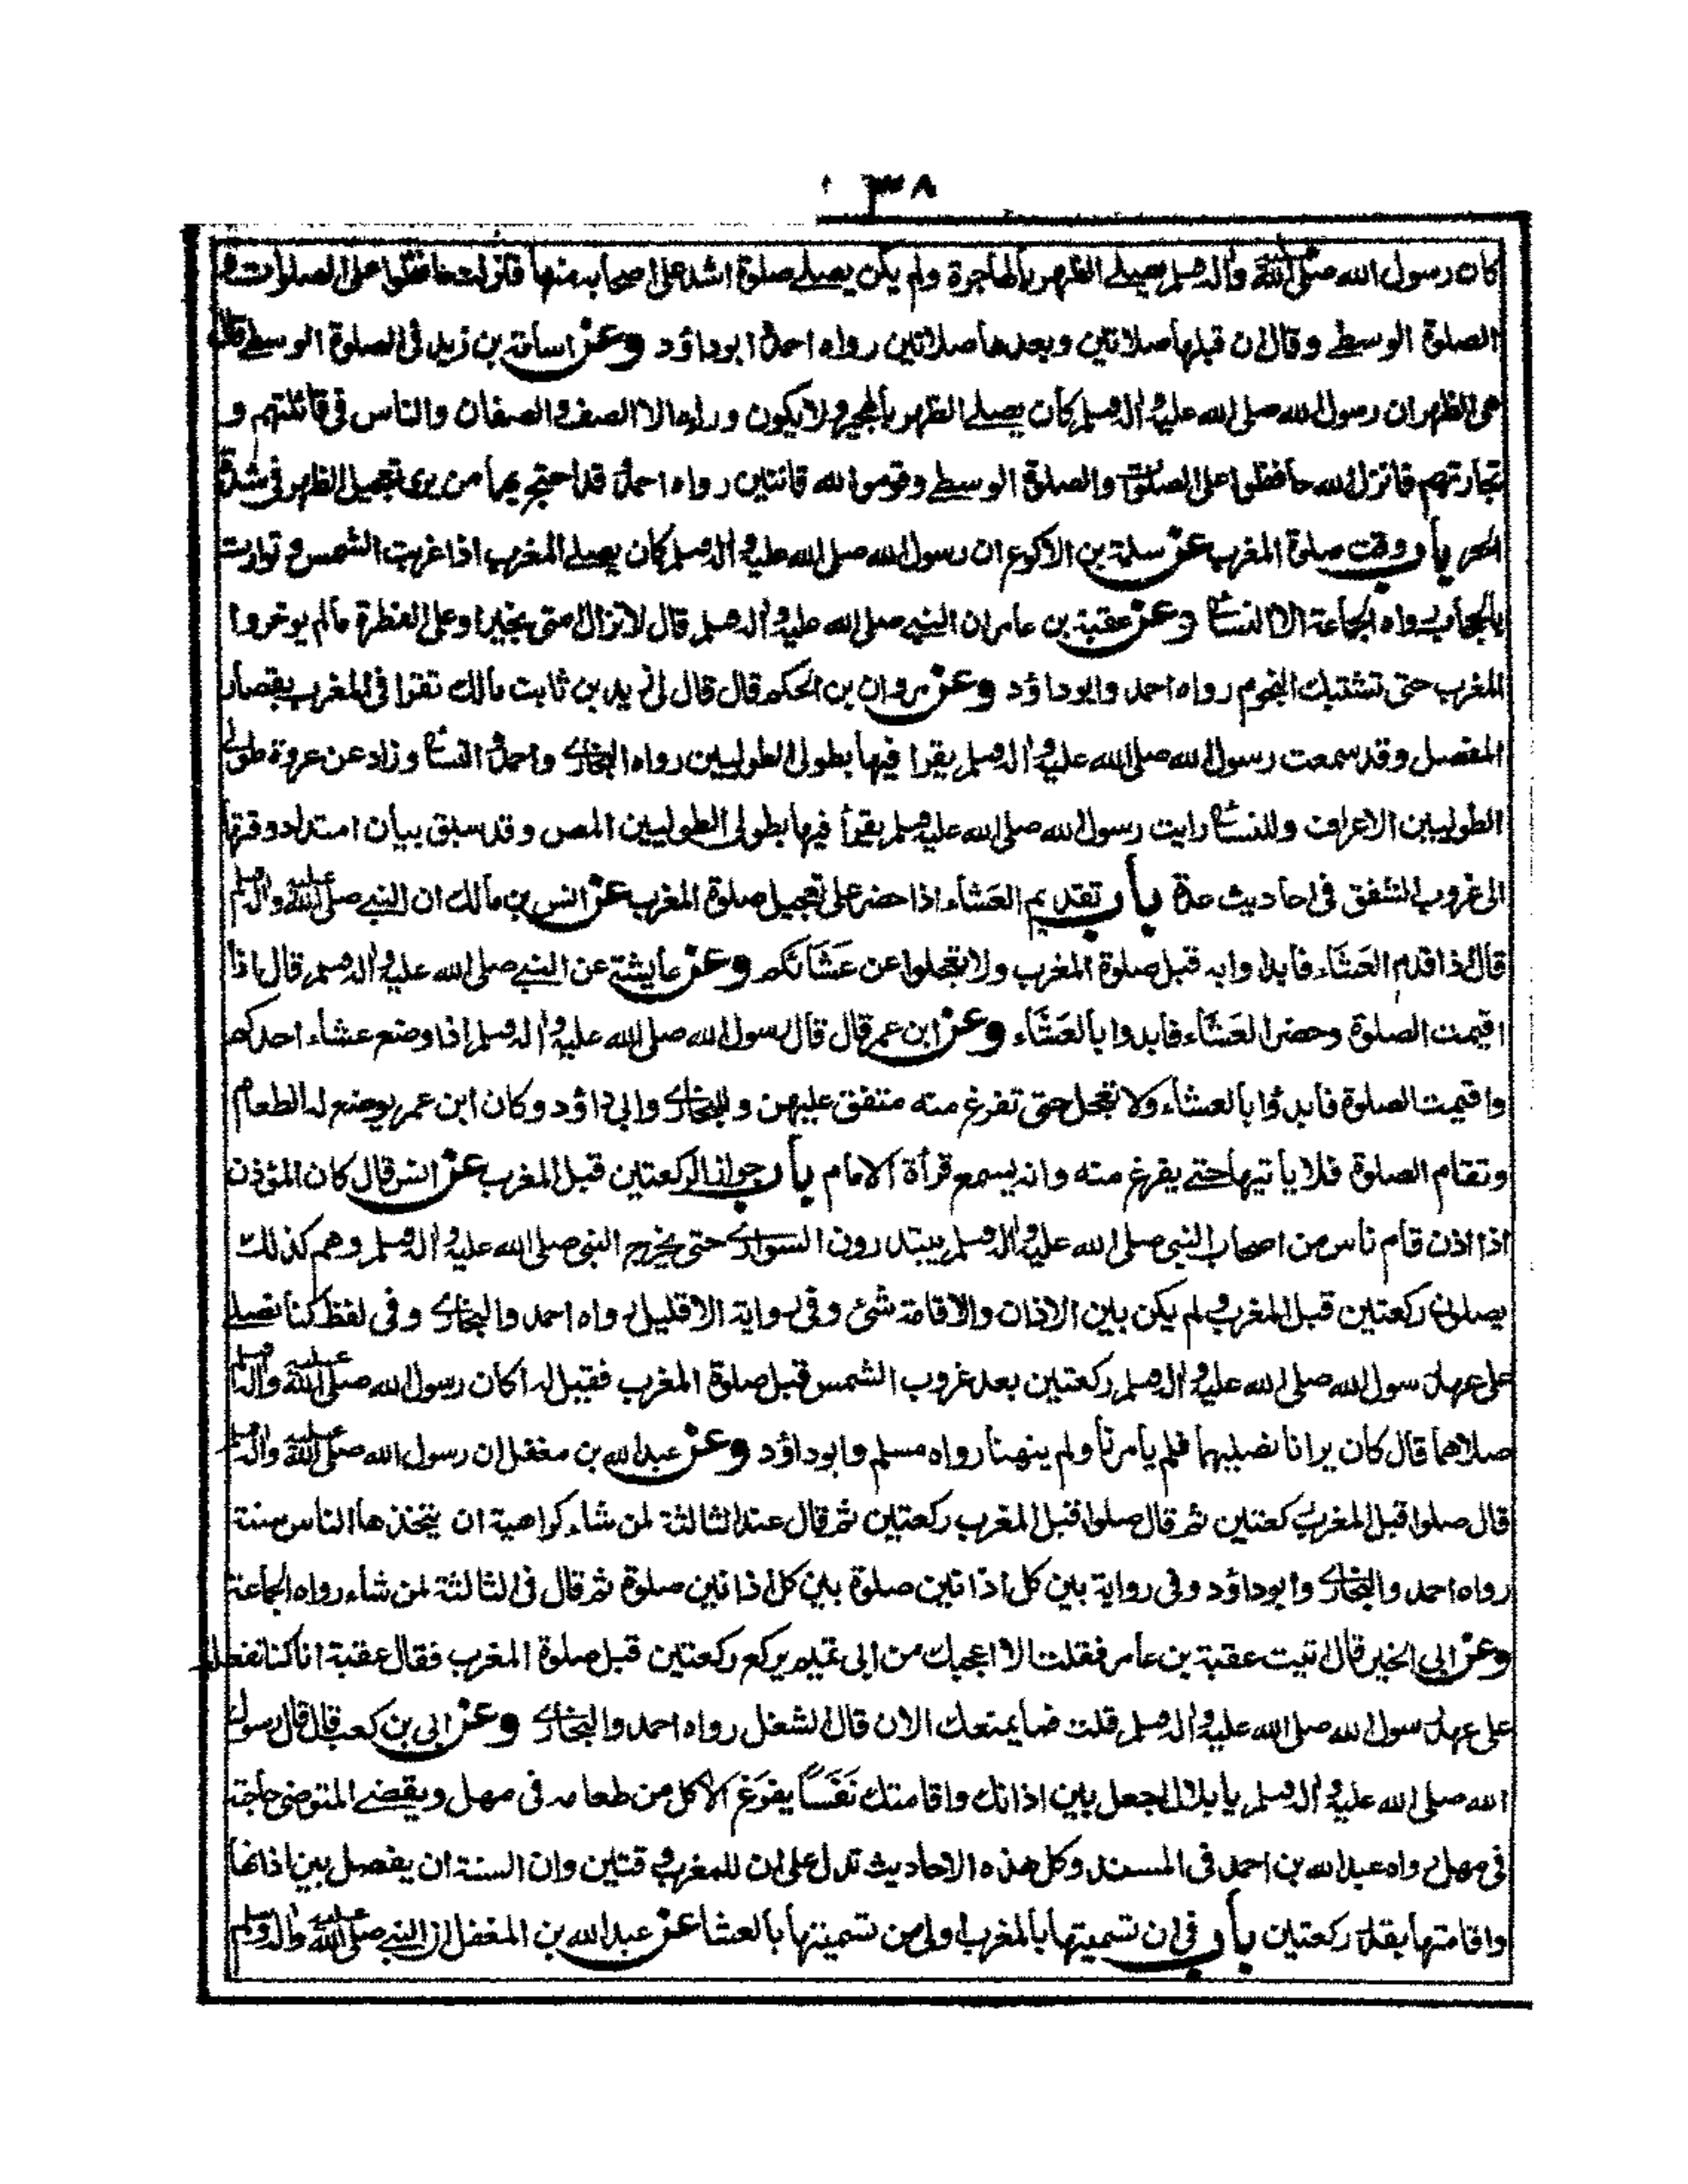 ٣٨
كان رسول الله صلى الله عليه واله وسلم يصلے الظهر بالهاجرة ولم يكن يصلے صلوة اشد على اصحابه منها فنزلت حافظوا على الصلوات و
الصلوة الوسطے وقال ان قبلها صلاتين وبعدها صلاتين رواه احمد وابوداؤد وعن اسامة بن زيد فى الصلوة الوسطے قال
هى الظهر ان رسول الله صلى الله عليه واله وسلم كان يصلے الظهر بالهجير ولا يكون وراءه الا الصف والصفان والناس فى قائلتهم و
تجارتهم فانزل الله حافظوا على الصلوات والصلوة الوسطے وقوموا لله قانتين رواه احمد قد احتج بهما من يرى تعجيل الظهر فى شدة
الحر باب وقت صلوة المغرب عن سلمة بن الاكوع ان رسول الله صلى الله عليه واله وسلم كان يصلے المغرب اذا غربت الشمس وتوارت
بالحجاب رواه الجماعة الا النسائى وعن عقبة بن عامر ان النبے صلى الله عليه واله وسلم قال لا تزال امتى بخير او على الفطرة مالم يوخروا
المغرب حتى تشتبك النجوم رواه احمد وابوداؤد وعن مروان بن الحكم قال قال لى زيد بن ثابت مالك تقرا فى المغرب بقصار
المفصل وقد سمعت رسول الله صلى الله عليه واله وسلم يقرا فيها بطولى الطوليين رواه البخارى واحمد والنسائى وزاد عن عروة طولى
الطوليين الاعراف وللنسائى رايت رسول الله صلى الله عليه وسلم يقرأ فيها بطولى الطوليين المص وقد سبق بيان امتداد وقتها
الى غروب الشفق فى احاديث عدة باب تقديم العَشَاء اذا حضر على تعجيل صلوة المغرب عن انس بن مالك ان النبے صلى الله عليه واله وسلم
قال اذا قدم العَشَاء فابدوا به قبل صلوة المغرب ولا تعجلوا عن عَشَائكم وعن عايشة عن النبے صلى الله عليه واله وسلم قال اذا
اقيمت الصلوة وحضر العَشَاء فابدوا بالعَشَاء وعن ابن عمر قال قال رسول الله صلى الله عليه واله وسلم اذا وضع عشاء احدكم
واقيمت الصلوة فابدؤا بالعشاء ولا تعجل حتى تفرغ منه متفق عليهن وللبخارى وابى داؤد وكان ابن عمر يوضع له الطعام
وتقام الصلوة فلا ياتيها حتے يفرغ منه وانه يسمع قرأة الامام باب جواز الركعتين قبل المغرب عن انس قال كان المؤذن
اذا اذن قام ناس من اصحاب النبى صلى الله عليه واله وسلم يبتدرون السوارى حتى يخرج النبى صلى الله عليه واله وسلم وهم كذلك
يصلون ركعتين قبل المغرب ولم يكن بين الاذان والاقامة شئ وفى رواية الا قليل رواه احمد والبخارى وفى لفظ كنا نصلے
على عهد رسول الله صلى الله عليه واله وسلم ركعتين بعد غروب الشمس قبل صلوة المغرب فقيل له اكان رسول الله صلى الله عليه واله وسلم
صلاهما قال كان يرانا نصليهما فلم يأمرنا ولم ينهنا رواه مسلم وابوداؤد وعن عبد الله بن مغفل ان رسول الله صلى الله عليه واله وسلم
قال صلوا قبل المغرب ركعتين ثم قال صلوا قبل المغرب ركعتين ثم قال عند الثالثة لمن شاء كراهية ان يتخذها الناس سنة
رواه احمد والبخارى وابوداؤد وفى رواية بين كل اذانين صلوة بين كل اذانين صلوة ثم قال فى الثالثة لمن شاء رواه الجماعة
وعن ابى الخير قال اتيت عقبة بن عامر فقلت الا اعجبك من ابى تميم يركع ركعتين قبل صلوة المغرب فقال عقبة انا كنا نفعله
على عهد رسول الله صلى الله عليه واله وسلم قلت فما يمنعك الان قال الشغل رواه احمد والبخارى وعن ابى بن كعب قال قال رسول
الله صلى الله عليه واله وسلم يا بلال اجعل بين اذانك واقامتك نَفَسًا يفرَغ الاكل من طعامه فى مهل ويقضے المتوضى حاجته
فى مهل رواه عبد الله بن احمد فى المسند وكل هذه الاحاديث تدل على ان للمغرب وقتين وان السنة ان يفصل بين اذانها
واقامتها بقدر ركعتين باب فى ان تسميتها بالمغرب اولى من تسميتها بالعشا عن عبد الله بن المغفل ان النبے صلى الله عليه واله وسلم